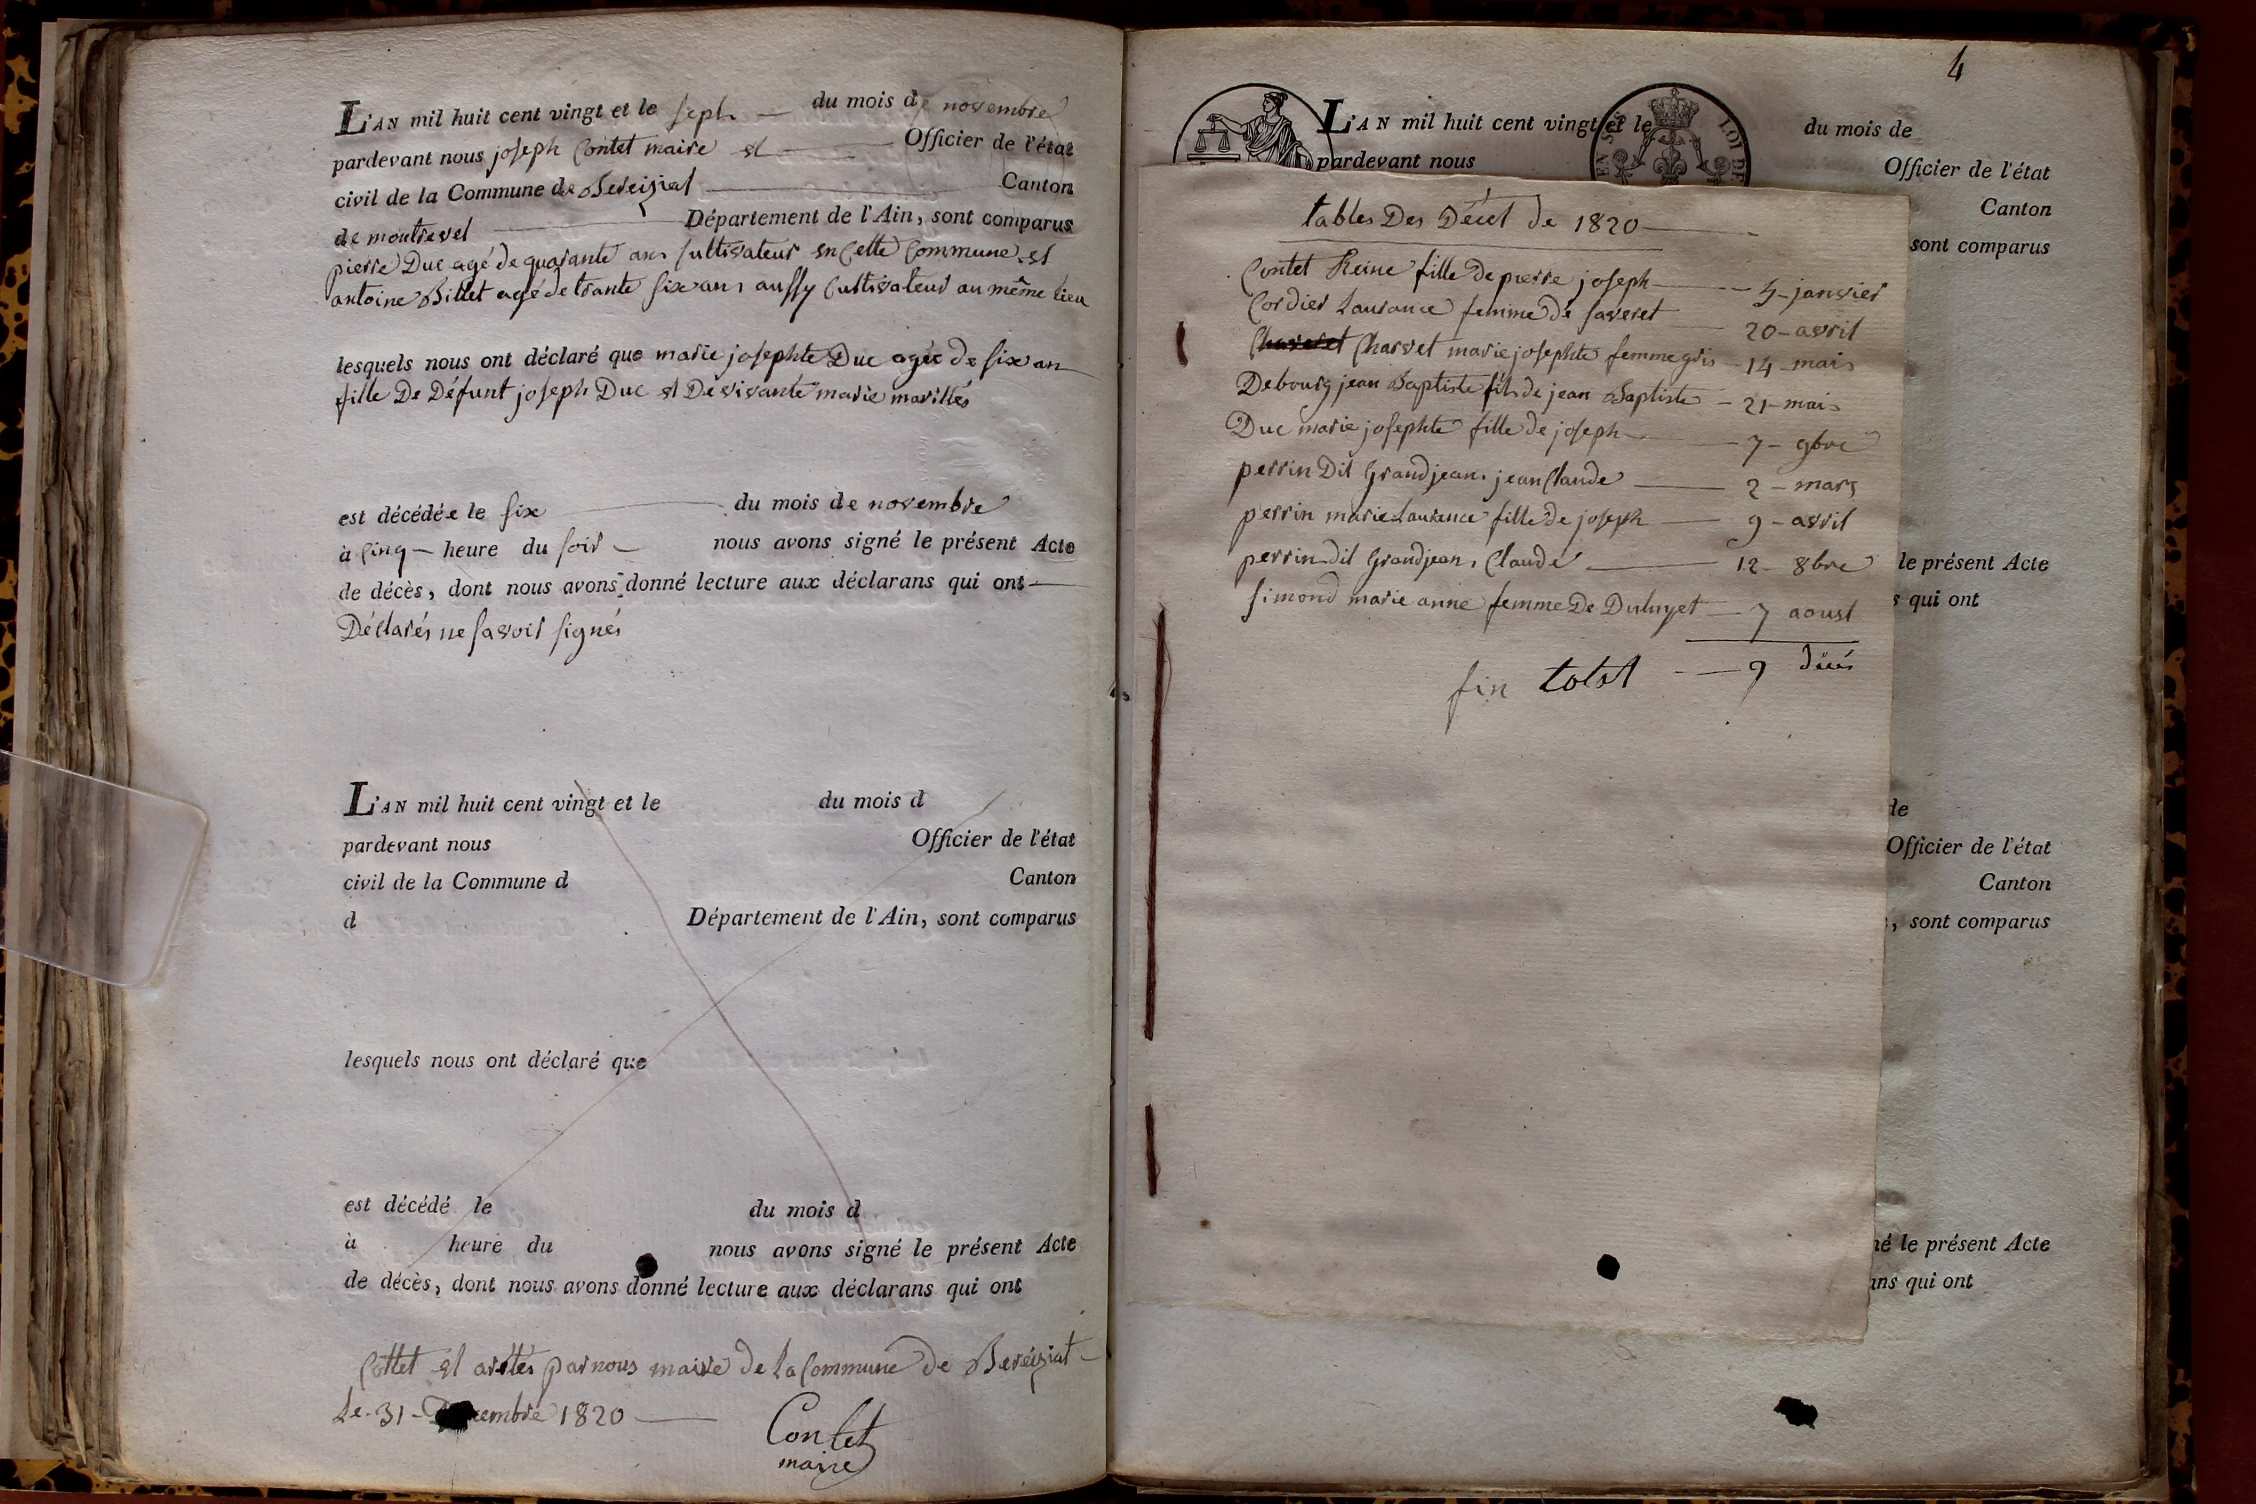 L'AN mil huit cent vingt et le sept du mois de novembre
pardevant nous joseph Contet maire et Officier de l'état
civil de la Commune de Bereiziat Canton
de montrevel Département de l'Ain, sont comparus
pierre Duc agé de quarante ans Cultivateur en Cette Commune et
antoine Billet agé de trante six ans aussy Cultivateur au même lieu
lesquels nous ont déclaré que marie josephte Duc agée de six an
fille De Défunt joseph Duc et De vivante marie
est décédée le six du mois de novembre
à Cinq heure du soir nous avons signé le présent Acte
de décès, dont nous avons donné lecture aux déclarans qui ont
Déclarés ne savoir signés
L'AN mil huit cent vingt et le du mois d
pardevant nous Officier de l'état
civil de la Commune d Canton
d Département de l'Ain, sont comparus
lesquels nous ont déclaré que
est décédé le du mois d
à heure du nous avons signé le présent Acte
de décès, dont nous avons donné lecture aux déclarans qui ont
Cottet et aretés par nous maire de La Commune de Bereiziat
Le 31 Decembre 1820
Contet
maire
4
L'AN mil huit cent vingt et le du mois de
pardevant nous Officier de l'état
Canton
sont comparus
tables Des Décet de 1820
Contet Reine fille de pierre joseph 5 janvier
Cordier Laurance femme de faveret 20 avril
Charvet marie josephte femme gris 14 mais
Debourg jean Baptiste fils de jean Baptiste 21 mais
Duc marie josephte fille de joseph 7 9bre
perrin Dit Grandjean, jean Claude 2 mars
perrin marie Laurance fille de joseph 9 avril
perrin dit Grandjean, Claude 12 8bre
Simond marie anne femme De 7 aoust
fin total 9 décés
le présent Acte
s qui ont
de
Officier de l'état
Canton
, sont comparus
né le présent Acte
ans qui ont